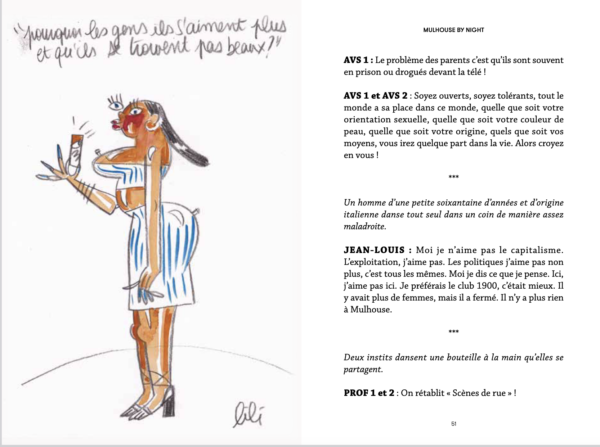 "pourquoi les gens ils s'aiment plus
et qu'ils se trouvent pas beaux?"
lili
MULHOUSE BY NIGHT
AVS 1 : Le problème des parents c'est qu'ils sont souvent
en prison ou drogués devant la télé !
AVS 1 et AVS 2 : Soyez ouverts, soyez tolérants, tout le
monde a sa place dans ce monde, quelle que soit votre
orientation sexuelle, quelle que soit votre couleur de
peau, quelle que soit votre origine, quels que soit vos
moyens, vous irez quelque part dans la vie. Alors croyez
en vous !
***
Un homme d'une petite soixantaine d'années et d'origine
italienne danse tout seul dans un coin de manière assez
maladroite.
JEAN-LOUIS : Moi je n'aime pas le capitalisme.
L'exploitation, j'aime pas. Les politiques j'aime pas non
plus, c'est tous les mêmes. Moi je dis ce que je pense. Ici,
j'aime pas ici. Je préférais le club 1900, c'était mieux. Il
y avait plus de femmes, mais il a fermé. Il n'y a plus rien
à Mulhouse.
***
Deux instits dansent une bouteille à la main qu'elles se
partagent.
PROF 1 et 2 : On rétablit « Scènes de rue » !
51